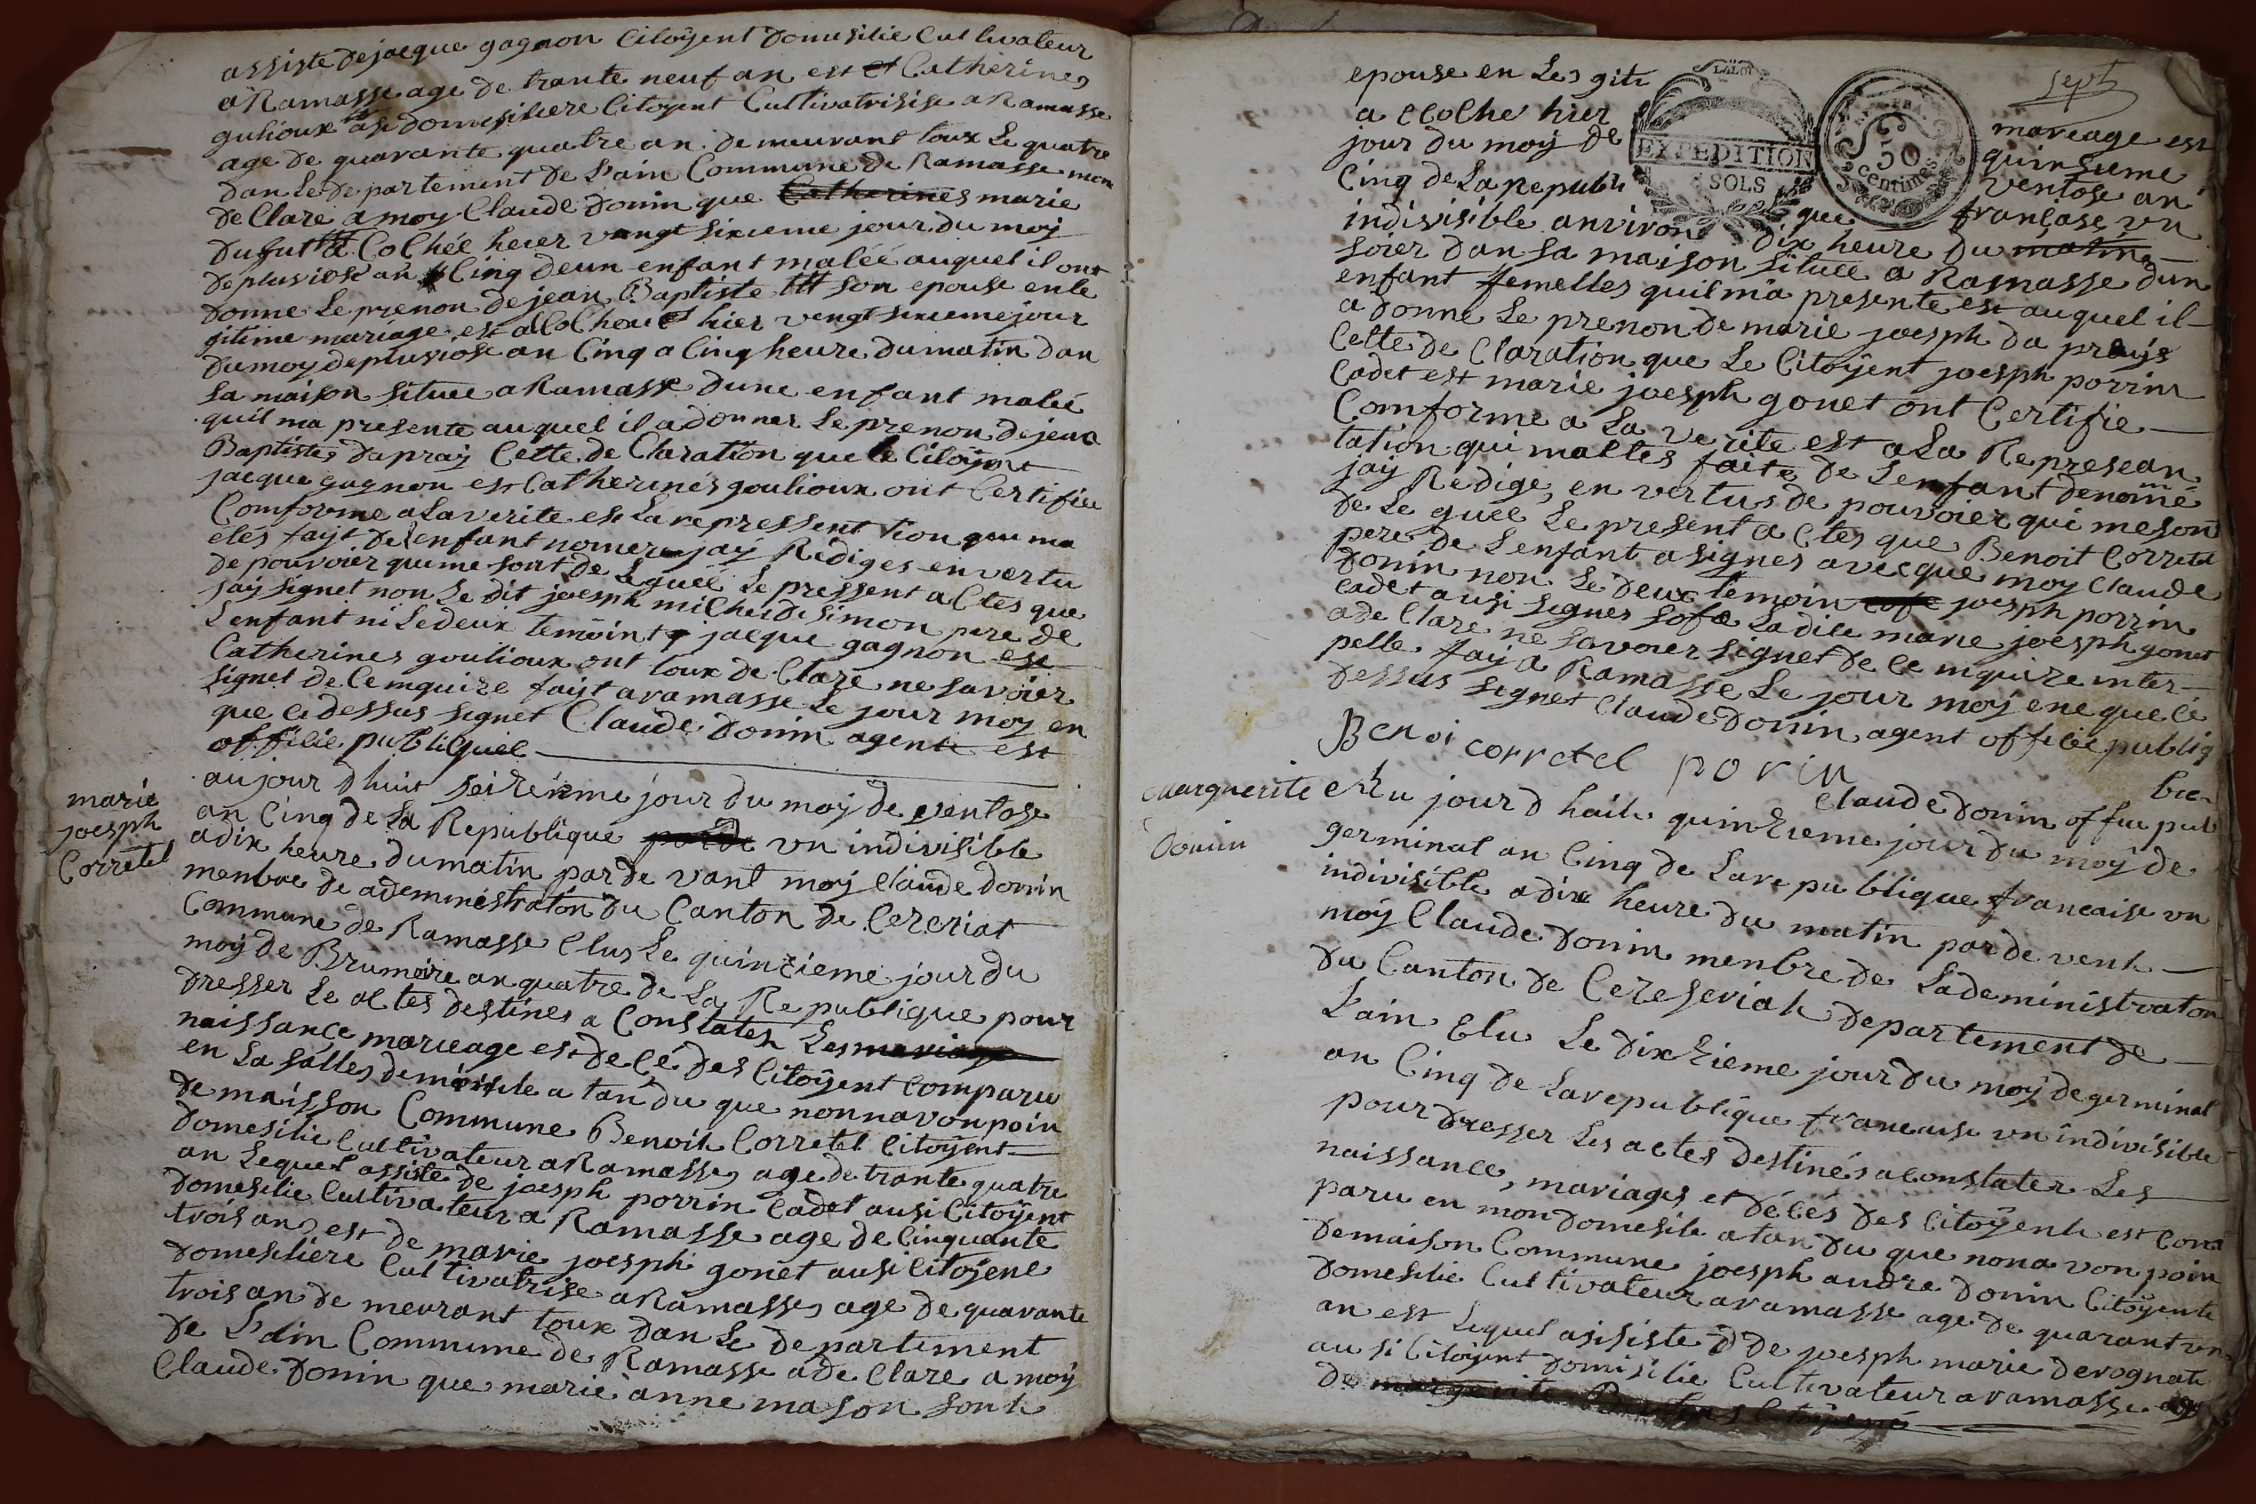 assiste de jacque gagnon Citoÿent domisilie Cultivateur
a Ramasse age de trante neuf an est et Catherines
gulioux ausi domesiliere Citoyent Cultivatrisise a Ramasse
age de quarante quatre an demeurant toux Le quatre
dan Le departement de L'ain Commune de Ramasse mon
de Clare a moy Claude donin que Catherines marie
dufut a Colhée heier vengt sixieme jour du moy
de plusiose an Cinq deun enfant maléé auquel il ont
donne Le prenon de jean Baptiste son epouse en le
gitime mariage est a Colhouet hier vengt sixieme jour
du moy de plusiose an Cinq a Cinq heure du matin dan
sa maison situee a Ramasse dune enfant maleé
quil ma presente auquel il a donner Le prenon de jean
Baptistes dapraÿ Cette de Claration que le Citoÿent
jacque gagnon est Catherines goulioux ont Certifiee
Comforme a La verite est La repressent tion qui ma
etés fayt de L'enfant nomer jaÿ Rediges en vertu
de pouvoier qui me sont de Leguéé Le pressent a Ctes que
jaÿ signet non Le dit joesph milhet de simon pere de
L'enfant ni Le deux temoint jacque gagnon est
Catherines goulioux ont toux de Clare ne savoier
signet de Ce mquire fayt a ramasse Le jour moy en
que cidessus signet Claude donin agent est
offisie publiquee
marie
joesph
Corretel
aujour dhuit seizeinme jour du moÿ de ventose
an Cinq de La Republique vn indivisible
a dix heure du matin par de vant moÿ Claude donin
menbre de ademinéstration du Canton de Cezeriat
Commune de Ramasse Elus Le quinzieme jour du
moÿ de Brumoire an quatre de La Republique pour
dresser Le actes destines a Constater Les mariage
naissance mareage est de Cé des Citoÿent Comparu
en La salles demisile a tan du que non navon poin
de maisson Commune Benoit Corretel Citoÿent
domesilie Cultivateur a Ramasses age de trante quatre
an Lequel assiste de joesph porrin Cadet ausi Citoÿent
domesilie Cultivateur a Ramasse age de Cinquante
trois an est de marie joesph gonet ausi Citoÿene
domesiliere Cultivatrise a Ramasses age de quarante
trois an de meurant toux dan Le departement
de L'ain Commune de Ramasse a de Clare a moÿ
Claude donin que marie anne mason sont
sept
epouse en Les giti mareage est
a Colhe hier quinsieme
jour du moÿ de ventose an
Cinq de La republi que française vn
LA LOI
EXPEDITION
SOLS
50
centimes
indivisible anviron dix heure du matin
soier dan sa maison situee a Ramasse dun
enfant femelles quil m'a presente est auquel il
a donne Le prenon de marie joesph da preÿs
Cette de Claration que Le Citoÿent joesph porrin
Cadet est marie joesph gonet ont Certifie
Comforme a La verite est a La Represean
tation qui maltes faite de L'enfant denomme
jaÿ Redige en vertus de pouvoier qui me son
de Le guee Le present a Ctes que Benoit Corretel
pere de L'enfant a signes avecque moy Claude
donin non Le deux temoin joesph porrin
cadet ausi signes sofe Ladite marie joesph gonet
a de Clare ne savoier signet de Ce mquire inter
pelle faÿ a Ramasse Le jour moÿ ene que Ce
dessus signet Claude donin agent offisie publiq
Benoi corretel porin
Claude donin offue pub
lice
Marguerite
donin
Au jour d huit quinzieme jour du moÿ de
germinal an Cinq de La republique francaise vn
indivisible a dix heure du matin par de vent
moÿ Claude donin menbre de Ladeministration
du Canton de Cezeseriah departement de
L'ain Elu Le dix zieme jour du moÿ de germinal
an Cinq de La republique francaise vn indivisible
pour dresser Les actes destinés a Constater Les
naissance, mariages et décés des Citoÿent est Com
paru en mon domesile a tan du que nona von poin
de maison Commune joesph andre donin Citoÿent
domesilie Cultivateur a ramasse age de quarant vn
an est Lequel asisiste de joesph marie derognat
au si Citoÿent domisilie Cultivateur a ramasse age
de